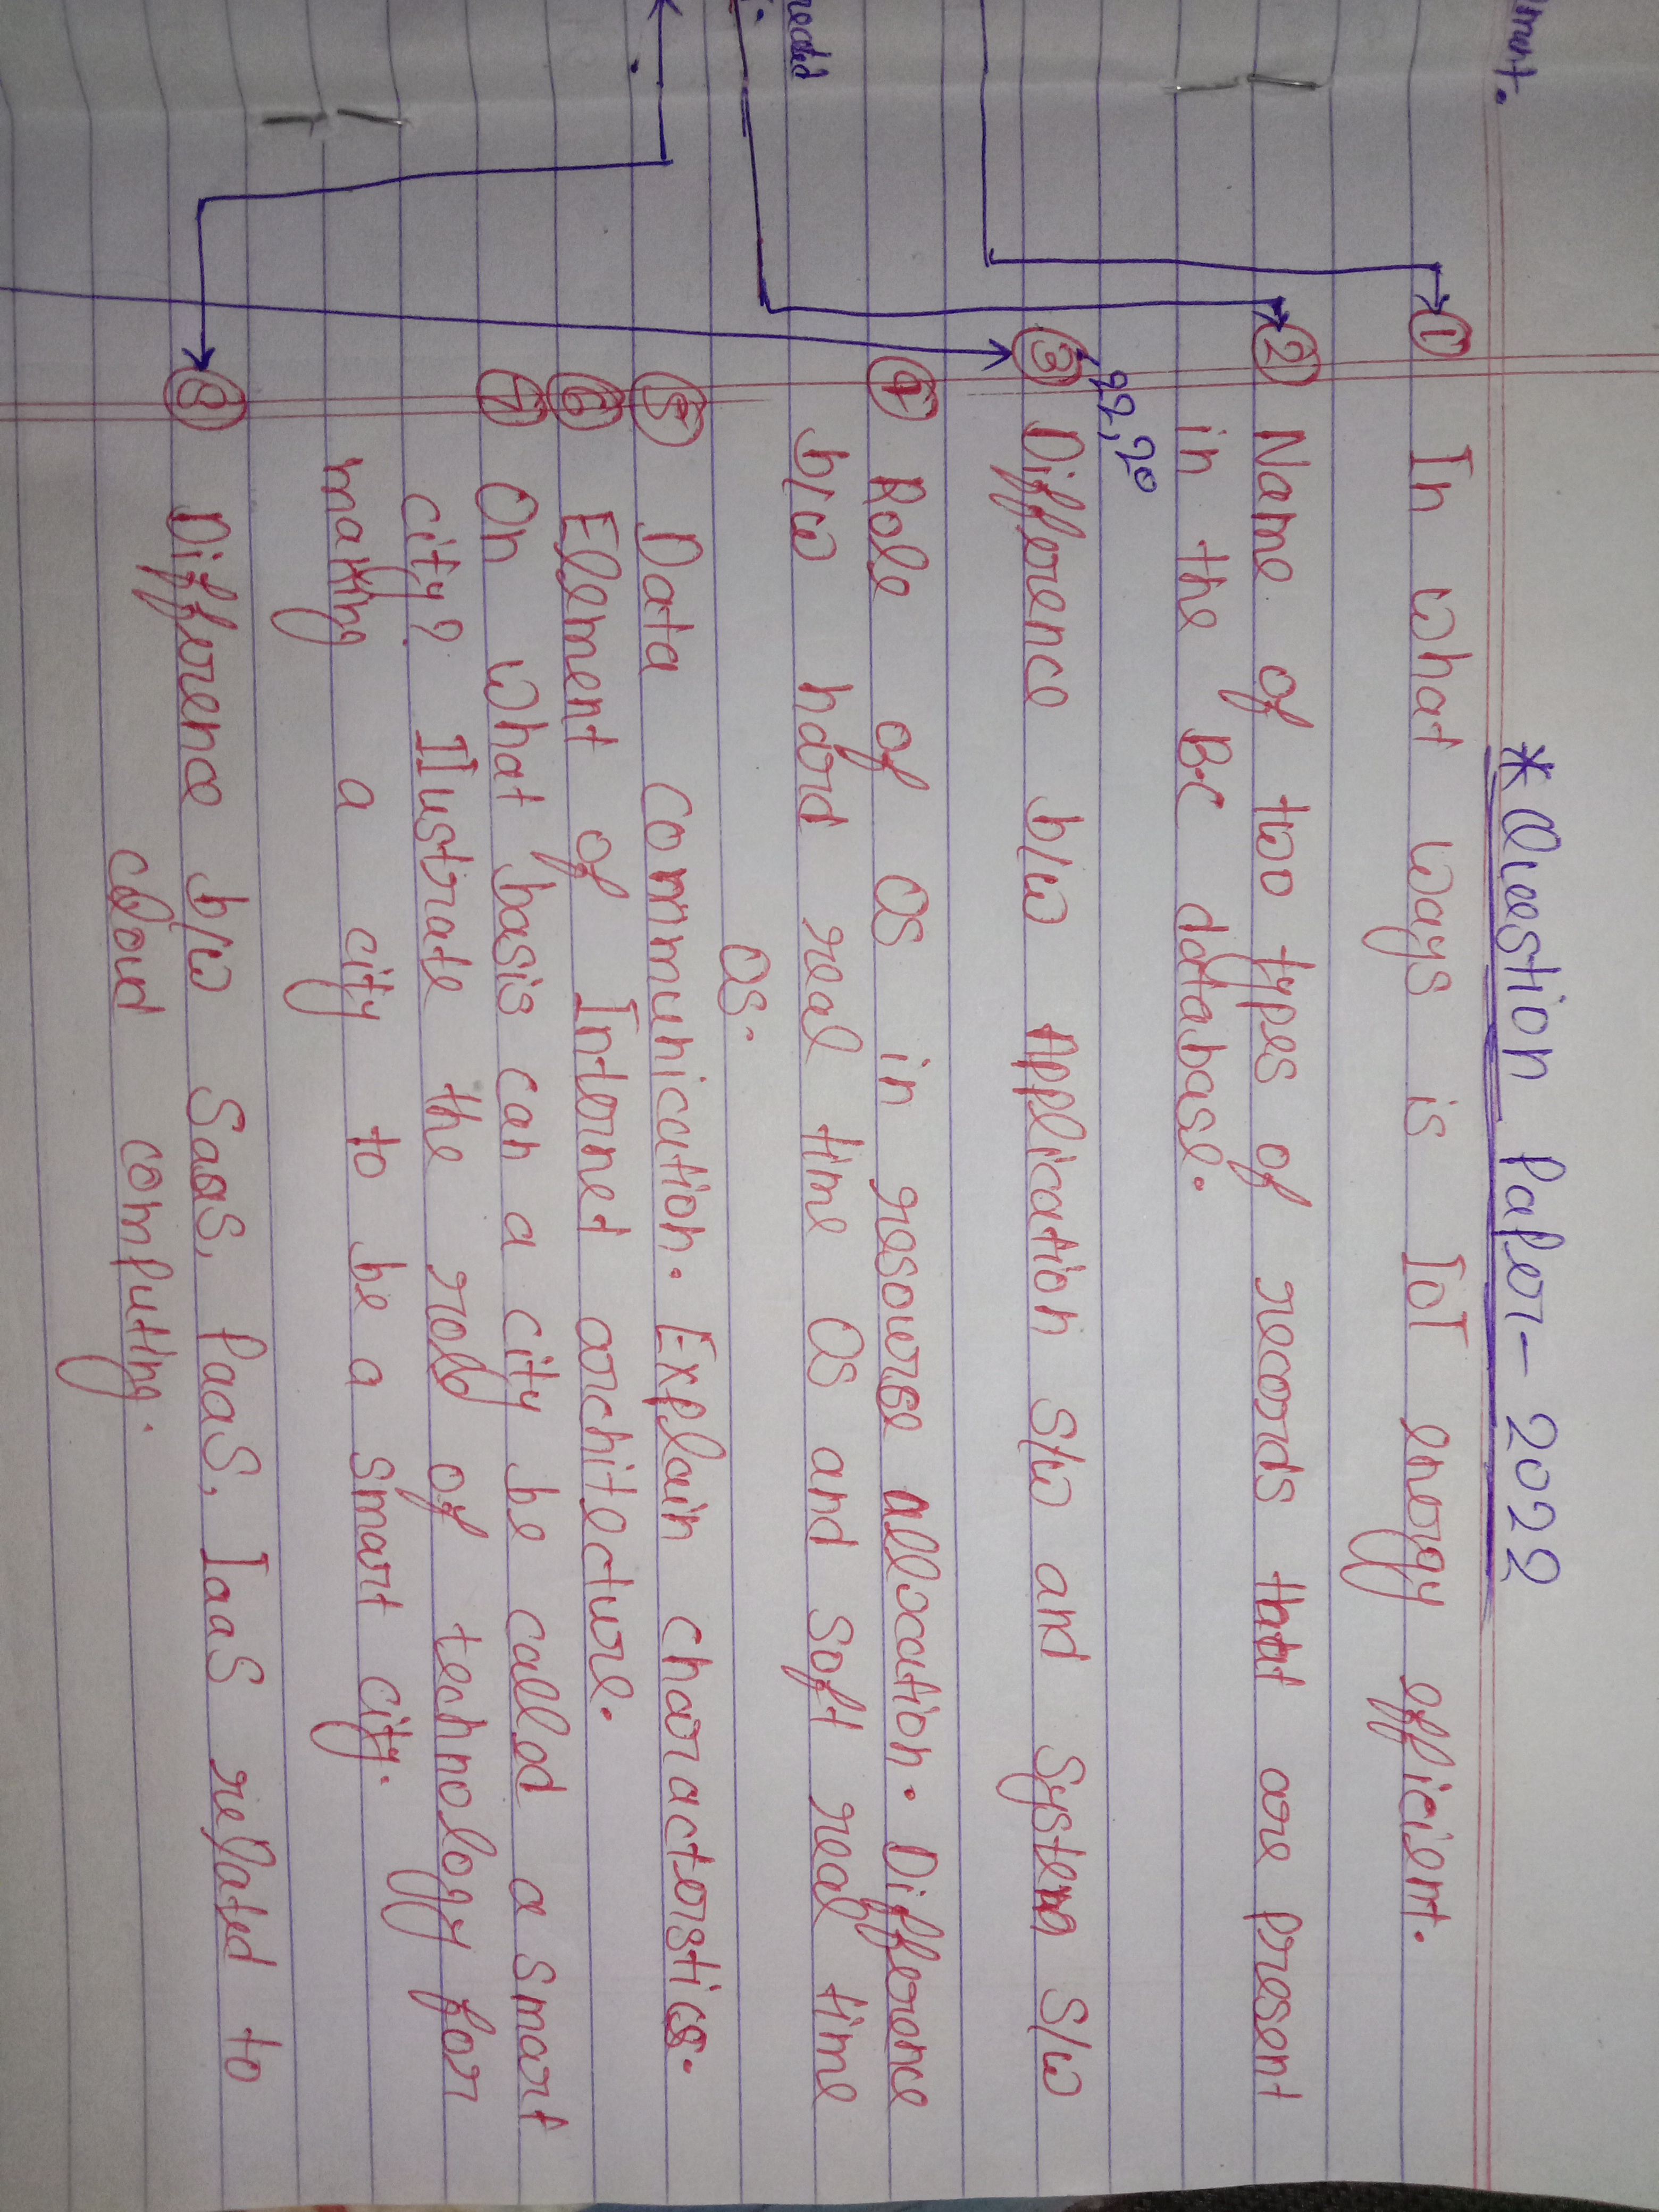 ment.
* Question Paper - 2022
① In what ways is IoT energy efficient.
② Name of two types of records that are present
in the B.C database.
22,20
③ Difference b/w Application S/W and System S/W
④ Role of OS in resource allocation. Difference
b/w hard real time OS and soft real time
reated
OS.
⑤ Data communication. Explain characterstics.
⑥ Element of Internet architecture.
⑦ On what basis can a city be called a smart
city? Ilustrate the role of technology for
making a city to be a smart city.
⑧ Difference b/w SaaS, PaaS, IaaS related to
cloud computing.